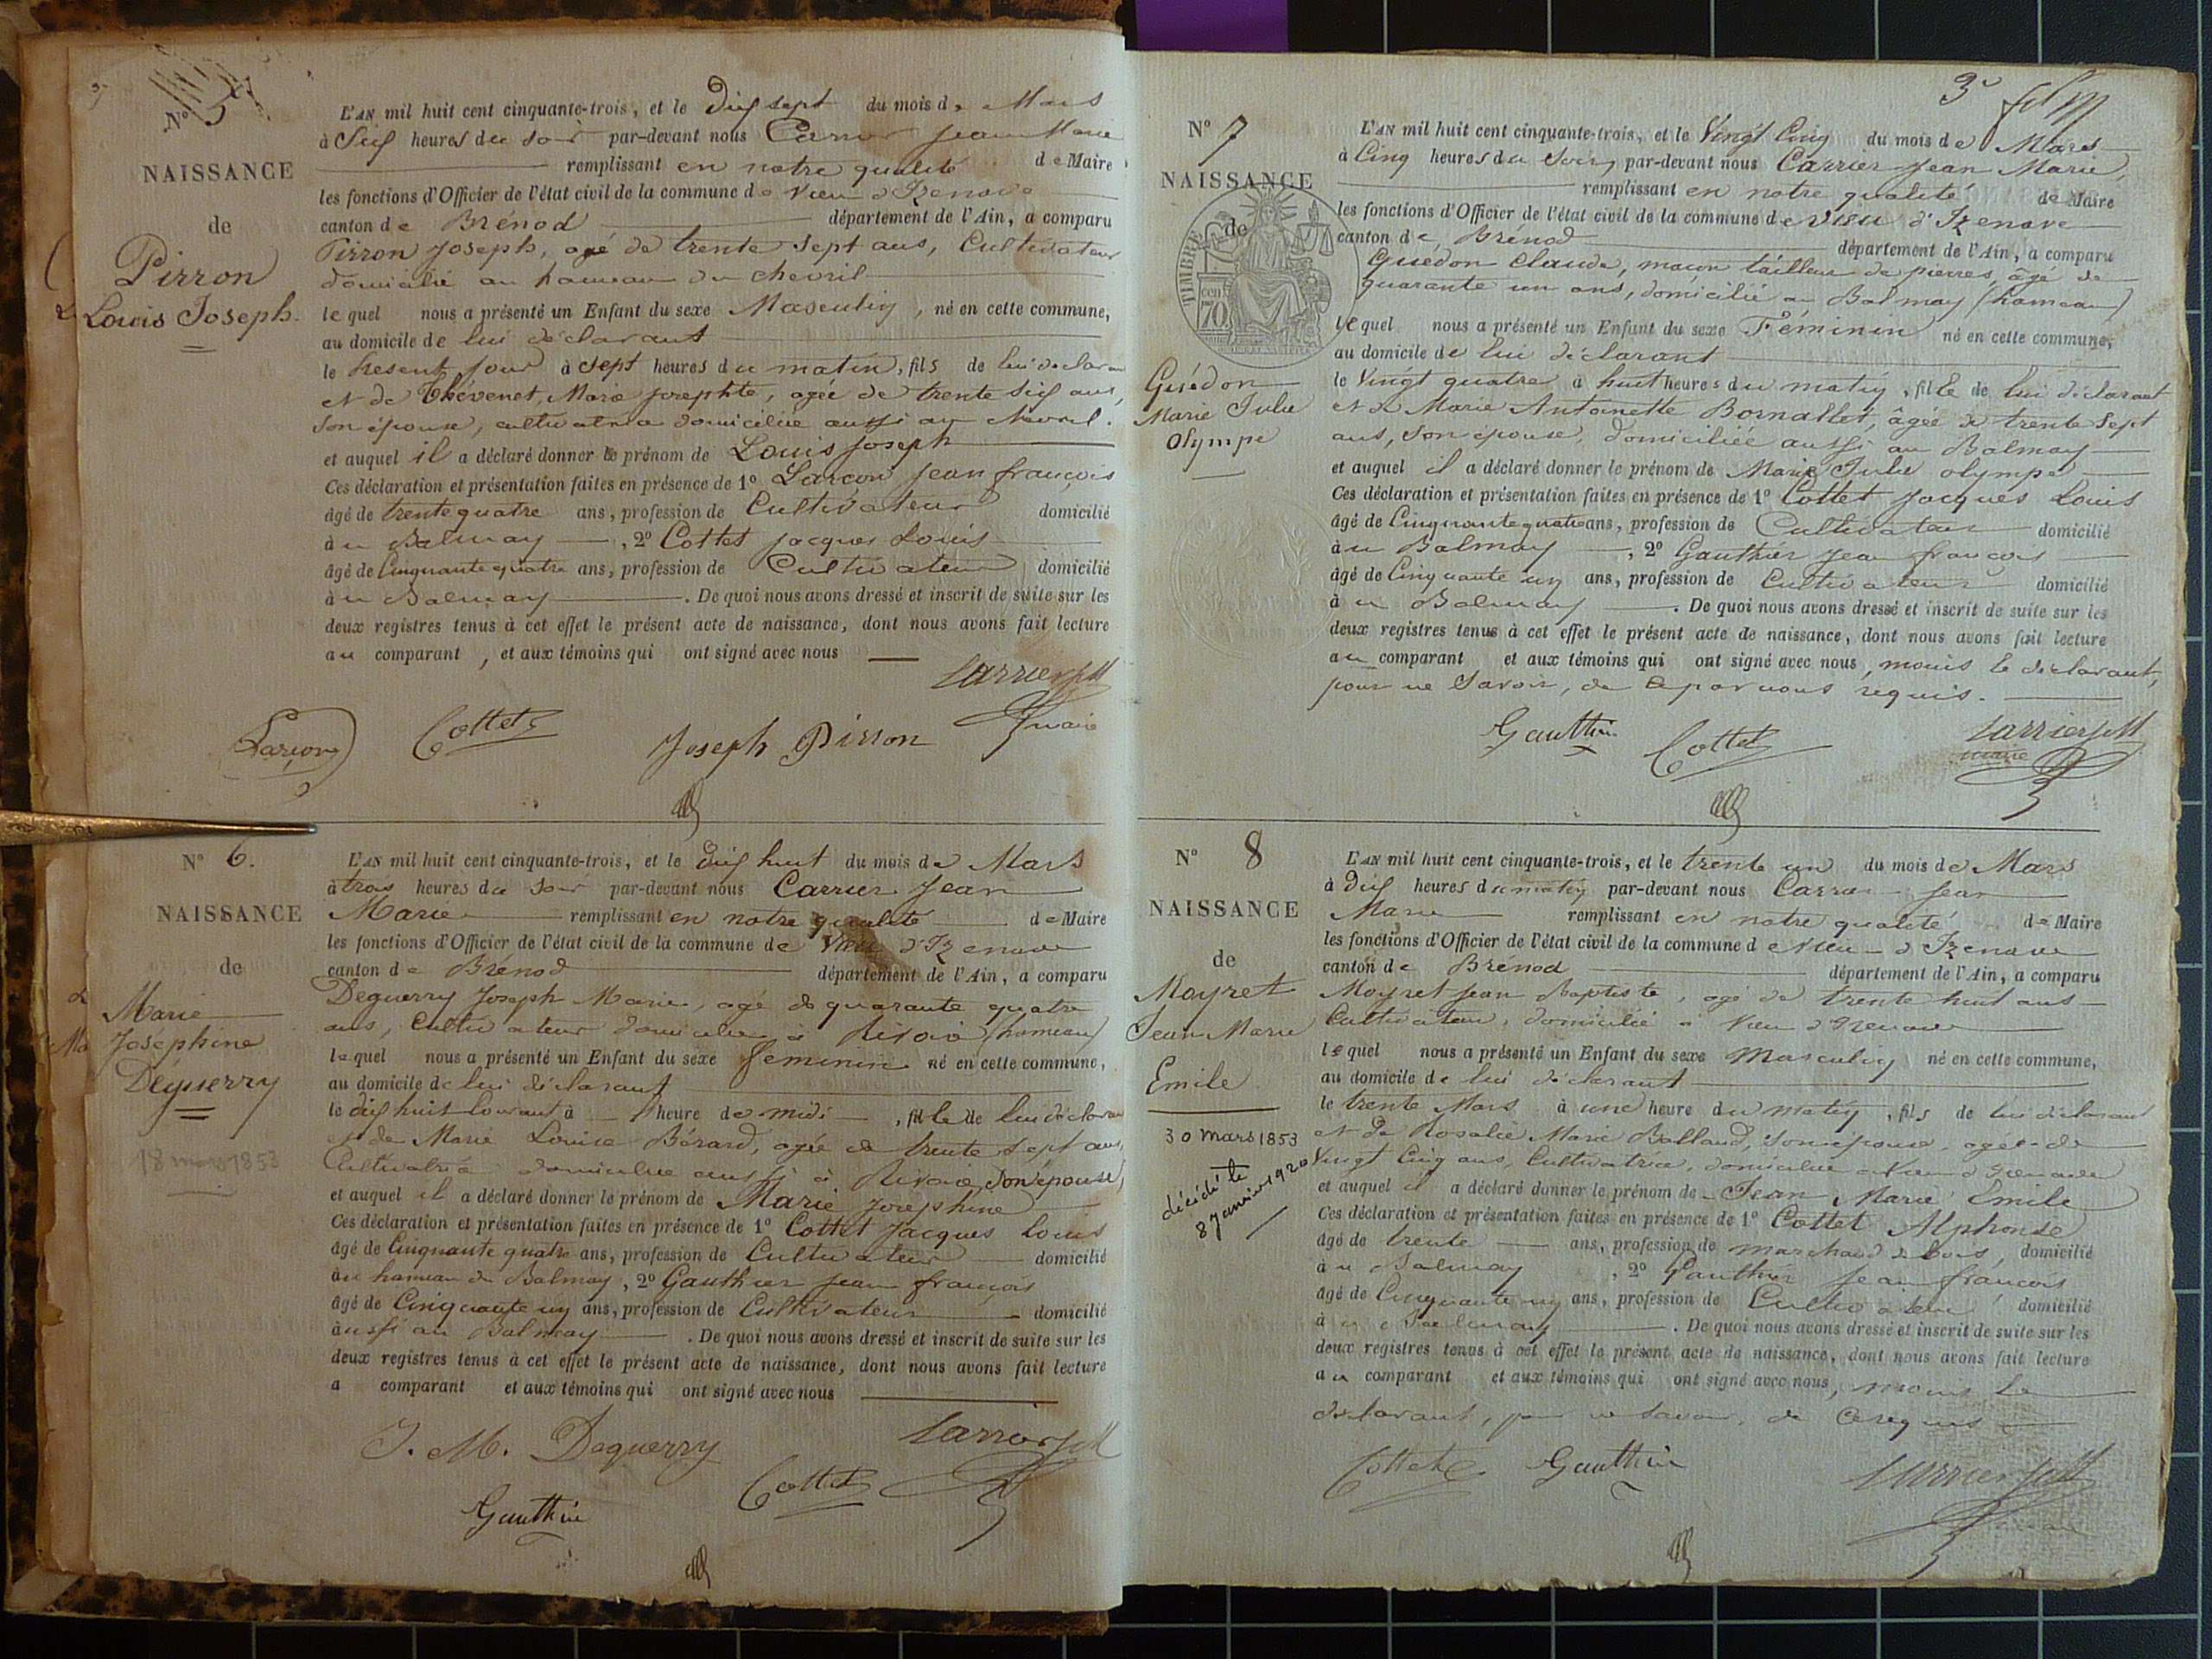 N° 5
NAISSANCE
de
Pirron
Louis Joseph.
L'AN mil huit cent cinquante-trois, et le Dix sept du mois de Mars
à Six heures du soir par-devant nous Carrier Jean Marie
remplissant en notre qualité de Maire
les fonctions d'Officier de l'état civil de la commune de Vieu d'Izenave
canton de Brénod département de l'Ain, a comparu
Pirron Joseph, agé de trente sept ans, Cultivateur
domicilié au hameau du chevril
lequel nous a présenté un Enfant du sexe Masculin, né en cette commune,
au domicile de lui déclarant
le présent jour à sept heures du matin, fils de lui déclarant
et de Thévenet, Marie Josephte, agée de trente six ans,
son épouse, cultivatrice domiciliée aussi au chevril.
et auquel il a déclaré donner le prénom de Louis Joseph
Ces déclaration et présentation faites en présence de 1° Larçon Jean françois
âgé de trente quatre ans, profession de Cultivateur domicilié
àu Balmay, 2° Cottet Jacques Louis
âgé de Cinquante quatre ans, profession de Cultivateur domicilié
àu Balmay. De quoi nous avons dressé et inscrit de suite sur les
deux registres tenus à cet effet le présent acte de naissance, dont nous avons fait lecture
au comparant, et aux témoins qui ont signé avec nous
Carrier JM
maire
Larçon Cottet Joseph Pirron
N° 6.
NAISSANCE
de
Marie
Joséphine
Déguerry
18 mars 1853
L'AN mil huit cent cinquante-trois, et le dix huit du mois de Mars
à trois heures du soir par-devant nous Carrier Jean
Marie remplissant en notre qualité de Maire
les fonctions d'Officier de l'état civil de la commune de Vieu d'Izenave
canton de Brénod département de l'Ain, a comparu
Deguerry Joseph Marie, agé de quarante quatre
ans, Cultivateur domicilié à (hameau)
lequel nous a présenté un Enfant du sexe féminin né en cette commune,
au domicile de lui déclarant
le dix huit Courant à heure de midi, fille de lui déclarant
et de Marie Louise Bérard, agée de trente sept ans,
Cultivatrice domiciliée aussi à son épouse,
et auquel il a déclaré donner le prénom de Marie Josephine
Ces déclaration et présentation faites en présence de 1° Cottet Jacques Louis
âgé de Cinquante quatre ans, profession de Cultivateur domicilié
àu hameau du Balmay, 2° Gauthier Jean françois
âgé de Cinquante un ans, profession de Cultivateur domicilié
àussi au Balmay. De quoi nous avons dressé et inscrit de suite sur les
deux registres tenus à cet effet le présent acte de naissance, dont nous avons fait lecture
a comparant et aux témoins qui ont signé avec nous
J. M. Deguerry Carrier JM
Gauthier Cottet
3
N° 7
NAISSANCE
de
TIMBRE
70 cen
Guédon
Marie Julie
Olympe
L'AN mil huit cent cinquante-trois, et le Vingt Cinq du mois de Mars
à Cinq heures du Soir, par-devant nous Carrier Jean Marie,
remplissant en notre qualité de Maire
les fonctions d'Officier de l'état civil de la commune de Vieu d'Izenave
canton de Brénod département de l'Ain, a comparu
Guédon Claude, maçon tailleur de pierres, âgé de
quarante un ans, domicilié au Balmay (hameau)
lequel nous a présenté un Enfant du sexe Féminin né en cette commune,
au domicile de lui déclarant
le Vingt quatre à huit heures du matin, fille de lui déclarant
et de Marie Antoinette Bornallet, âgée de trente sept
ans, son épouse, domiciliée aussi au Balmay
et auquel il a déclaré donner le prénom de Marie Julie olympe
Ces déclaration et présentation faites en présence de 1° Cottet Jacques Louis
âgé de Cinquante quatre ans, profession de Cultivateur domicilié
àu Balmay, 2° Gauthier Jean françois
âgé de Cinquante un ans, profession de Cultivateur domicilié
àu Balmay. De quoi nous avons dressé et inscrit de suite sur les
deux registres tenus à cet effet le présent acte de naissance, dont nous avons fait lecture
au comparant et aux témoins qui ont signé avec nous, moins le déclarant,
pour ne savoir, de ce par nous requis.
Gauthier Cottet Carrier JM
maire
N° 8
NAISSANCE
de
Moyret
Jean Marie
Emile
30 mars 1853
décédé le
8 janvier 1920
L'AN mil huit cent cinquante-trois, et le trente un du mois de Mars
à dix heures du matin par-devant nous Carrier Jean
Marie remplissant en notre qualité de Maire
les fonctions d'Officier de l'état civil de la commune de Vieu d'Izenave
canton de Brénod département de l'Ain, a comparu
Moyret Jean Baptiste, agé de trente huit ans
Cultivateur, domicilié à Vieu d'Izenave
lequel nous a présenté un Enfant du sexe Masculin né en cette commune,
au domicile de lui déclarant
le trente Mars à une heure du matin, fils de lui déclarant
et de Rosalie Marie Balland, son épouse, agée de
Vingt Cinq ans, Cultivatrice, domiciliée à Vieu d'Izenave
et auquel il a déclaré donner le prénom de Jean Marie Emile
Ces déclaration et présentation faites en présence de 1° Cottet Alphonse
âgé de trente ans, profession de marchand de bois, domicilié
àu Balmay, 2° Gauthier Jean françois
âgé de Cinquante un ans, profession de Cultivateur domicilié
àu Balmay. De quoi nous avons dressé et inscrit de suite sur les
deux registres tenus à cet effet le présent acte de naissance, dont nous avons fait lecture
au comparant et aux témoins qui ont signé avec nous, moins le
déclarant, pour ne savoir, de ce requis
Cottet Gauthier Carrier JM